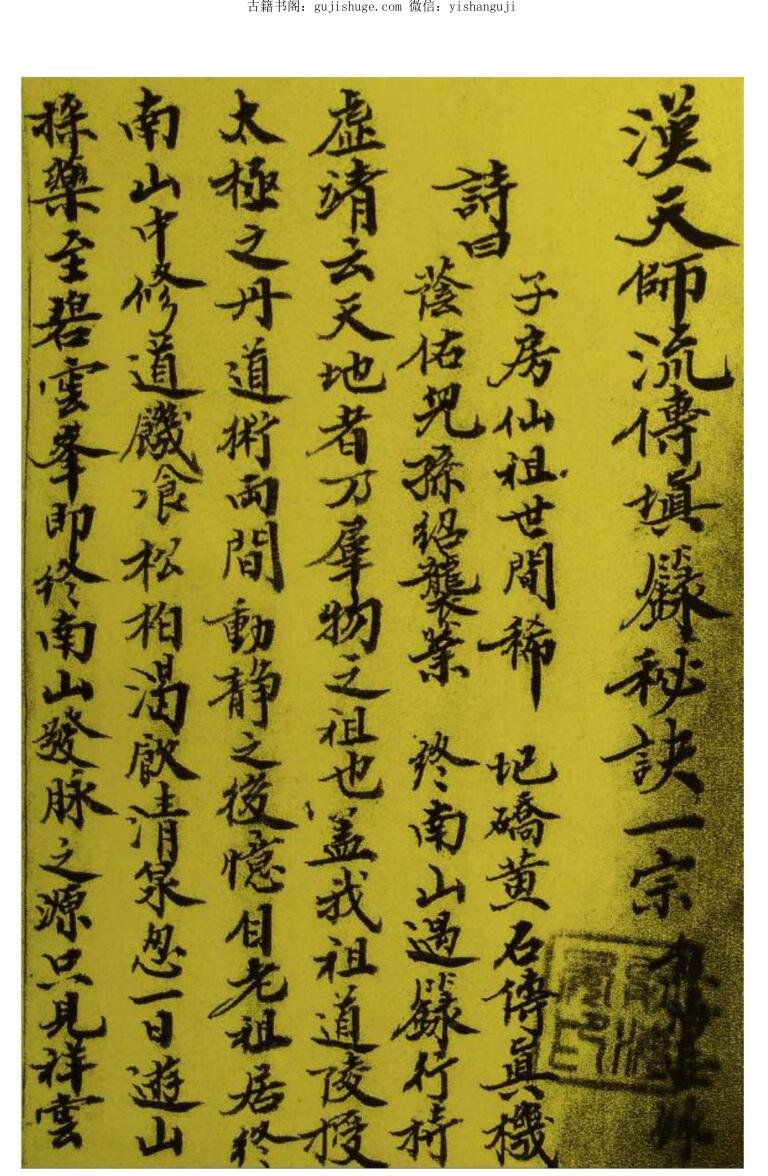 古籍书阁：gujishuge.com 微信：yishanguji
漢天師流傳填籙秘訣一宗
詩曰
子房仙祖世間稀 圯礄黄石傳真機
蔭佑兒孫紹襲業 終南山遇籙行持
虛靖云天地者乃羣物之祖也盖我祖道陵授
太極之丹道術両間動静之後憶自老祖居終
南山中修道饑飡松柏渴飲清泉忽一日遊山
採藥至碧雲峯即終南山發脉之源只見祥雲